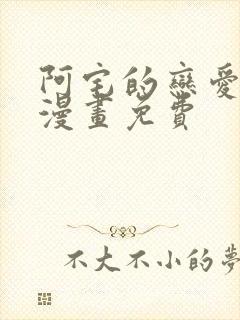 阿宅的戀愛
漫畫免費
不大不小的夢